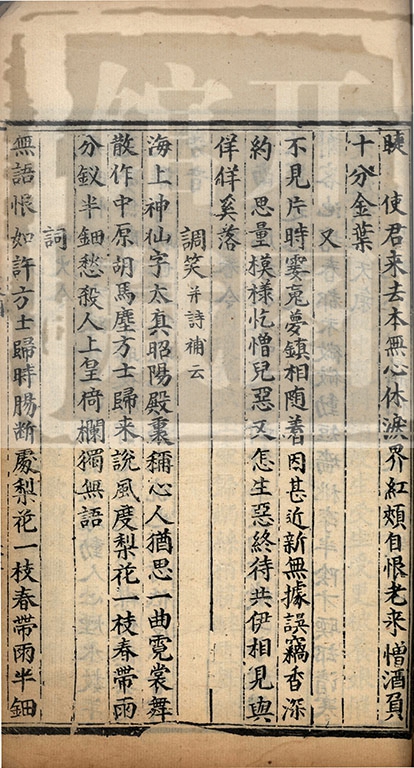 睫　使君来去本無心休淚界紅頰自恨老来憎酒負
十分金葉
又
不見片時霎䰟夢鎮相随着因甚近新無據誤竊香深
約　思量模様忔憎兒惡又怎生惡終待共伊相見與
佯佯奚落
調笑并詩補云
海上神仙字太真昭陽殿裏稱心人猶思一曲霓裳舞
散作中原胡馬塵方士歸来說風度梨花一枝春帶雨
分釵半鈿愁殺人上皇倚欄獨無語
詞
無語恨如許方士歸時腸斷處梨花一枝春帶雨半鈿